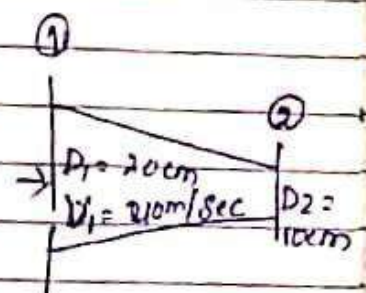 ①
②
D₁ = 20cm
V₁ = 210m/sec
D2 =
10cm